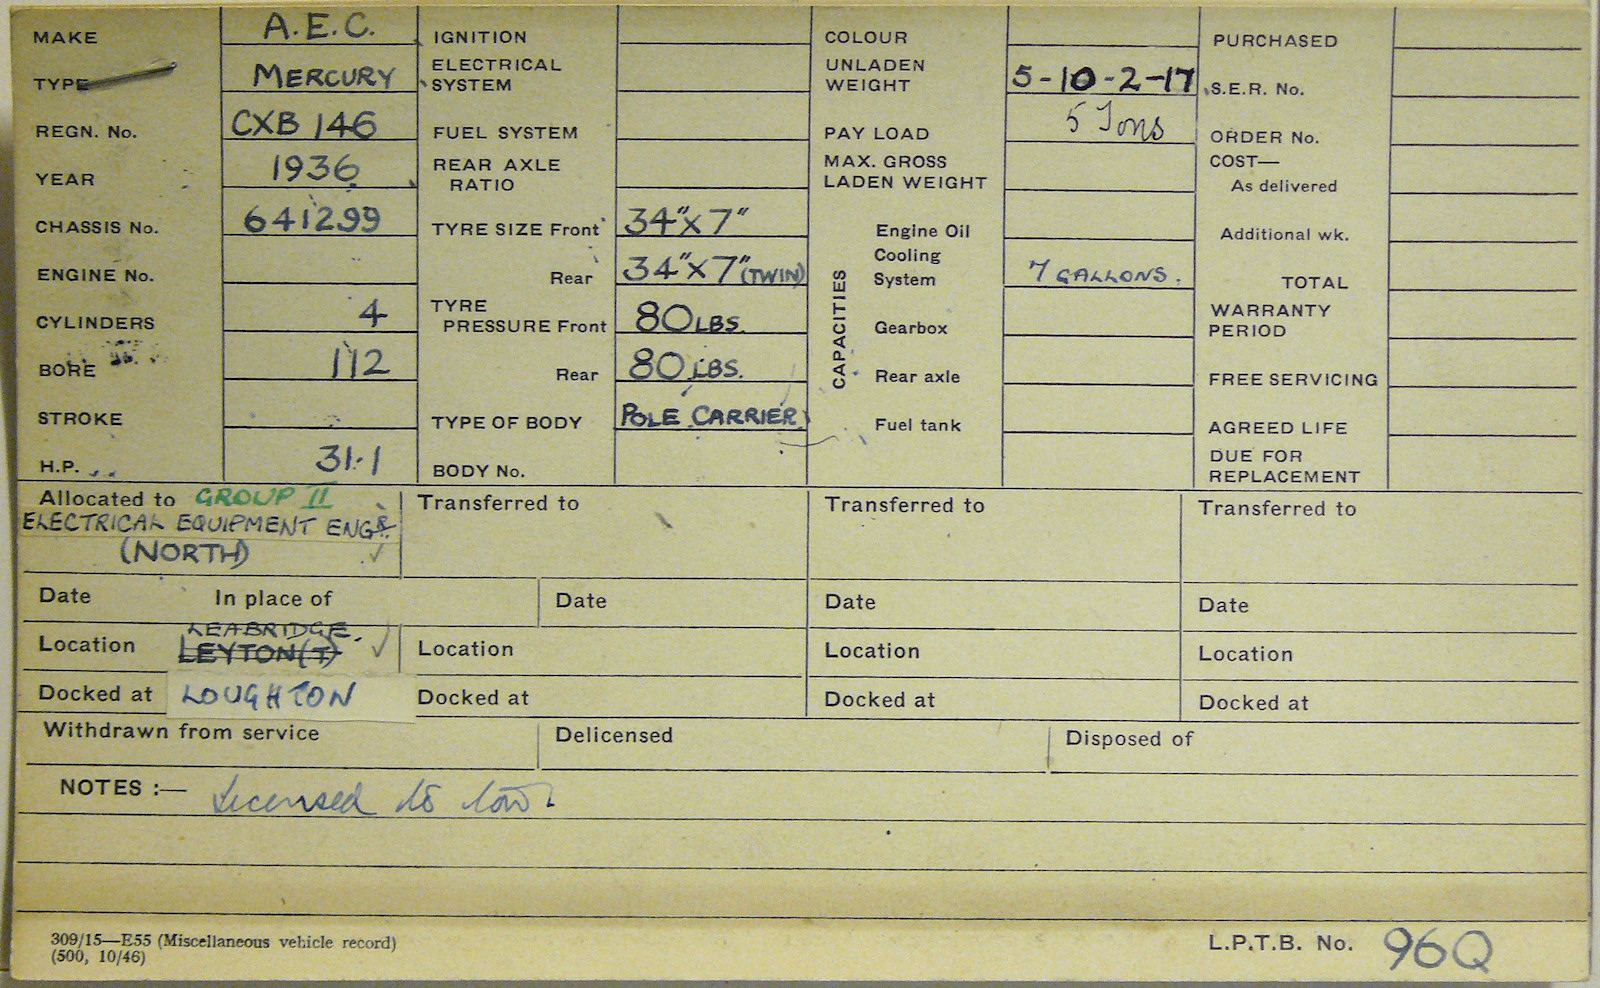 MAKE A.E.C.
TYPE MERCURY
REGN. No. CXB 146
YEAR 1936
CHASSIS No. 641299
ENGINE No.
CYLINDERS 4
BORE 112
STROKE
H.P. 31·1
IGNITION
ELECTRICAL
SYSTEM
FUEL SYSTEM
REAR AXLE
RATIO
TYRE SIZE Front 34"x7"
Rear 34"x7" (TWIN)
TYRE
PRESSURE Front 80 LBS.
Rear 80 LBS.
TYPE OF BODY POLE CARRIER
BODY No.
COLOUR
UNLADEN
WEIGHT 5-10-2-17
PAY LOAD 5 Tons
MAX. GROSS
LADEN WEIGHT
CAPACITIES
Engine Oil
Cooling
System 7 GALLONS.
Gearbox
Rear axle
Fuel tank
PURCHASED
S.E.R. No.
ORDER No.
COST—
As delivered
Additional wk.
TOTAL
WARRANTY
PERIOD
FREE SERVICING
AGREED LIFE
DUE FOR
REPLACEMENT
Allocated to GROUP II
ELECTRICAL EQUIPMENT ENGR.
(NORTH)
Transferred to
Transferred to
Transferred to
Date In place of
Date
Date
Date
LEABRIDGE.
Location LEYTON(T)
Location
Location
Location
Docked at LOUGHTON
Docked at
Docked at
Docked at
Withdrawn from service
Delicensed
Disposed of
NOTES :— Licensed to tow.
309/15—E55 (Miscellaneous vehicle record)
(500, 10/46)
L.P.T.B. No. 96Q